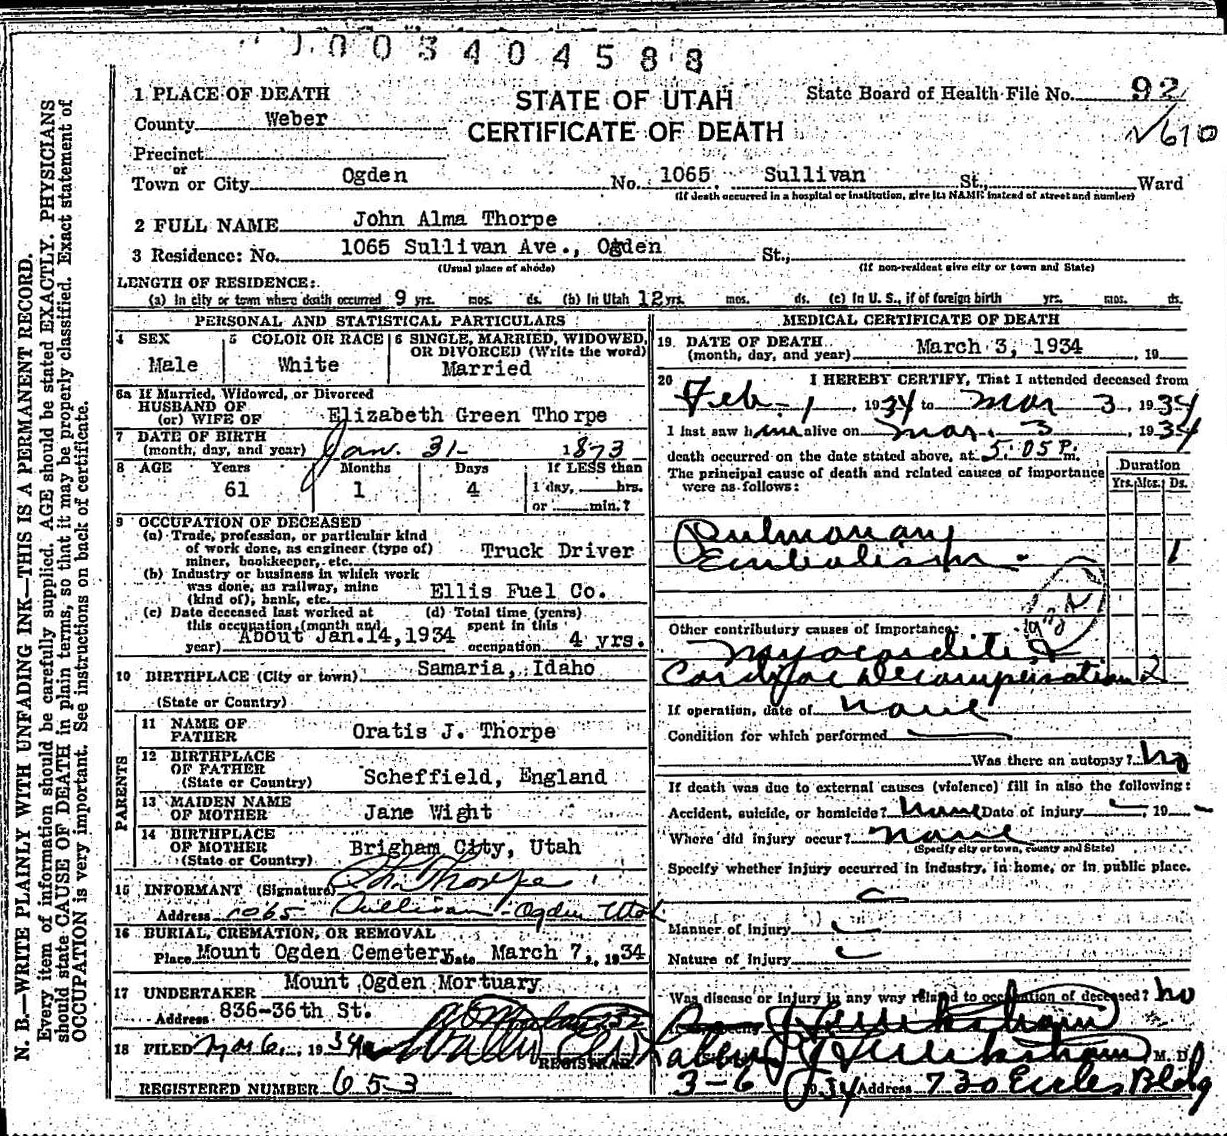 1003404588
1 PLACE OF DEATH
STATE OF UTAH
State Board of Health File No. 92
County Weber
CERTIFICATE OF DEATH
610
Precinct
or
Town or City Ogden No. 1065 Sullivan St., Ward
(If death occurred in a hospital or institution, give its NAME instead of street and number)
2 FULL NAME John Alma Thorpe
3 Residence: No. 1065 Sullivan Ave., Ogden St.,
(Usual place of abode) (If non-resident give city or town and State)
LENGTH OF RESIDENCE:
(a) In city or town where death occurred 9 yrs. mos. ds. (b) In Utah 12 yrs. mos. ds. (c) In U. S., if of foreign birth yrs. mos. ds.
N. B.—WRITE PLAINLY WITH UNFADING INK—THIS IS A PERMANENT RECORD.
Every item of information should be carefully supplied. AGE should be stated EXACTLY. PHYSICIANS
should state CAUSE OF DEATH in plain terms, so that it may be properly classified. Exact statement of
OCCUPATION is very important. See instructions on back of certificate.
PERSONAL AND STATISTICAL PARTICULARS
4 SEX Male
5 COLOR OR RACE White
6 SINGLE, MARRIED, WIDOWED,
OR DIVORCED (Write the word)
Married
6a If Married, Widowed, or Divorced
HUSBAND OF
(or) WIFE OF Elizabeth Green Thorpe
7 DATE OF BIRTH
(month, day, and year) Jan. 31- 1873
8 AGE Years Months Days If LESS than
61 1 4 1 day, hrs.
or min.?
9 OCCUPATION OF DECEASED
(a) Trade, profession, or particular kind
of work done, as engineer (type of)
miner, bookkeeper, etc. Truck Driver
(b) Industry or business in which work
was done, as railway, mine
(kind of), bank, etc. Ellis Fuel Co.
(c) Date deceased last worked at
this occupation (month and
year) About Jan.14,1934
(d) Total time (years)
spent in this
occupation 4 yrs.
10 BIRTHPLACE (City or town) Samaria, Idaho
(State or Country)
PARENTS
11 NAME OF
FATHER Oratis J. Thorpe
12 BIRTHPLACE
OF FATHER
(State or Country) Scheffield, England
13 MAIDEN NAME
OF MOTHER Jane Wight
14 BIRTHPLACE
OF MOTHER
(State or Country) Brigham City, Utah
15 INFORMANT (Signature) Thorpe
Address 1065 Sullivan - Ogden Utah
16 BURIAL, CREMATION, OR REMOVAL
Place Mount Ogden Cemetery Date March 7, 1934
17 UNDERTAKER Mount Ogden Mortuary
Address 836-36th St.
18 FILED Mar 6, 1934
REGISTRAR
REGISTERED NUMBER 653
MEDICAL CERTIFICATE OF DEATH
19. DATE OF DEATH
(month, day, and year) March 3, 1934, 19
20 I HEREBY CERTIFY, That I attended deceased from
Feb - 1, 1934 to Mar 3, 1934
I last saw him alive on Mar. 3, 1934
death occurred on the date stated above, at 5:05 P.m.
The principal cause of death and related causes of importance
were as follows:
Duration
Yrs. Mos. Ds.
Pulmonary
Embolism - 1
Other contributory causes of importance:
Myocarditis &
Cardiac decompensation 2
If operation, date of none
Condition for which performed
Was there an autopsy? no
If death was due to external causes (violence) fill in also the following:
Accident, suicide, or homicide? none Date of injury 19
Where did injury occur? none
(Specify city or town, county and State)
Specify whether injury occurred in industry, in home, or in public place.
Manner of injury
Nature of injury
Was disease or injury in any way related to occupation of deceased? no
M. D.
3-6 1934 Address 730 Eccles Bldg